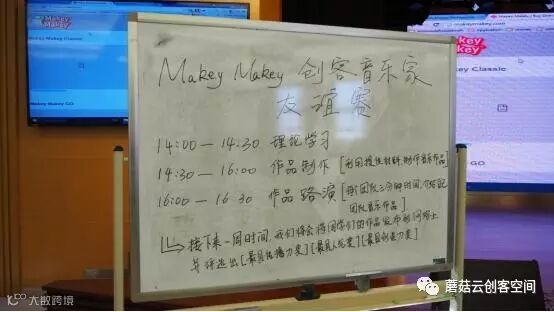 Makey Makey
Makey Makey Classic
Makey Makey GO
makeymakey.com
Makey Makey
Makey Classic
Makey Makey 创客音乐家
友谊赛
14:00 — 14:30 理论学习
14:30 — 16:00 作品制作 [利用提供材料,制作音乐作品]
16:00 — 16:30 作品路演 [每团队三分钟时间,介绍
团队音乐作品]
接下来一周时间,我们将会将同学们的作品发布到网络上
并评选出[最具传播力奖][最具人气奖][最具创造力奖]
大数跨境
蘑菇云创客空间